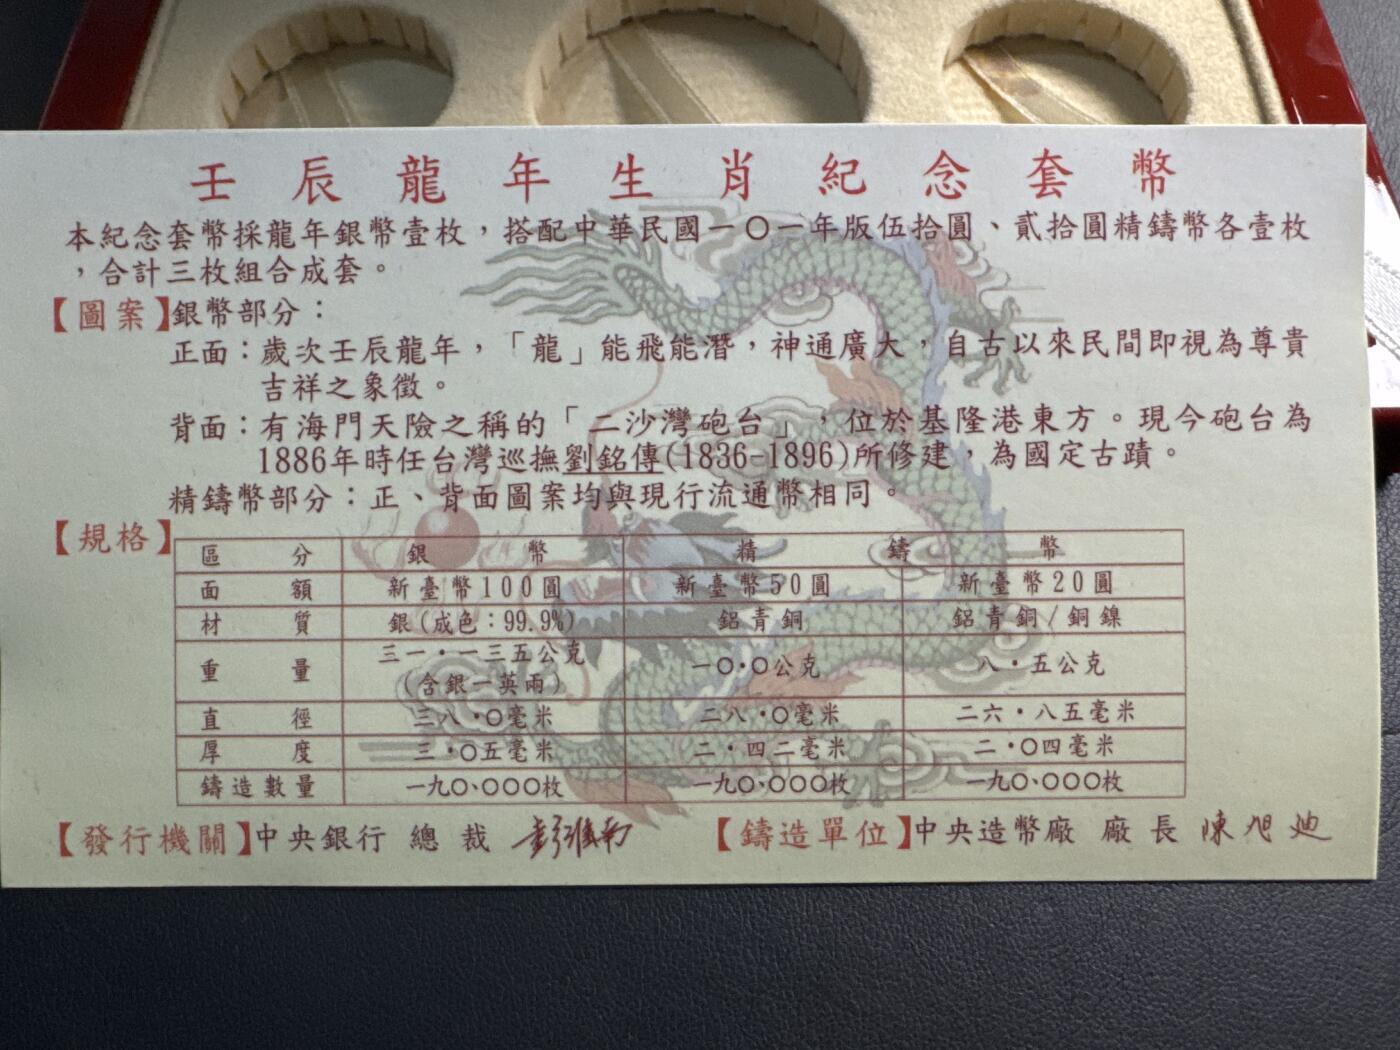 壬辰龍年生肖紀念套幣
本紀念套幣採龍年銀幣壹枚，搭配中華民國一〇一年版伍拾圓、貳拾圓精鑄幣各壹枚
，合計三枚組合成套。
【圖案】銀幣部分：
正面：歲次壬辰龍年，「龍」能飛能潛，神通廣大，自古以來民間即視為尊貴
吉祥之象徵。
背面：有海門天險之稱的「二沙灣砲台」，位於基隆港東方。現今砲台為
1886年時任台灣巡撫劉銘傳(1836-1896)所修建，為國定古蹟。
精鑄幣部分：正、背面圖案均與現行流通幣相同。
【規格】
區分 銀幣 精鑄幣
面額 新臺幣100圓 新臺幣50圓 新臺幣20圓
材質 銀(成色：99.9%) 鋁青銅 鋁青銅/銅鎳
重量 三一·一三五公克 一〇·〇公克 八·五公克
(含銀一英兩)
直徑 三八·〇毫米 二八·〇毫米 二六·八五毫米
厚度 三·〇五毫米 二·四二毫米 二·〇四毫米
鑄造數量 一九〇、〇〇〇枚 一九〇、〇〇〇枚 一九〇、〇〇〇枚
【發行機關】中央銀行 總裁 彭淮南 【鑄造單位】中央造幣廠 廠長 陳旭迪